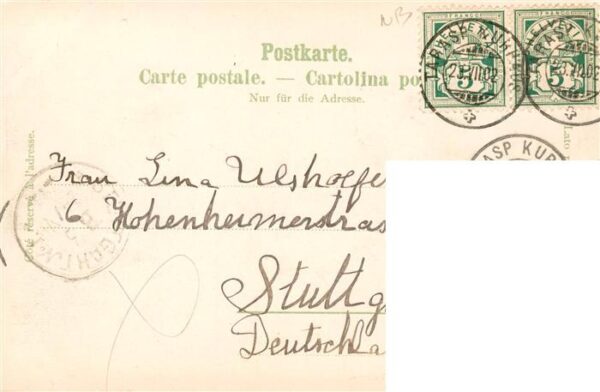 NB
Postkarte.
Carte postale. — Cartolina po
Nur für die Adresse.
HELVETIA
FRANCO
5
5
TARASP KURHAUS
TARASP
ASP KUR
Côté réservé à l'adresse.
Lato
Frau Lina Ulshoefe
16 Hohenheimerstras
Stuttg
Deutschla